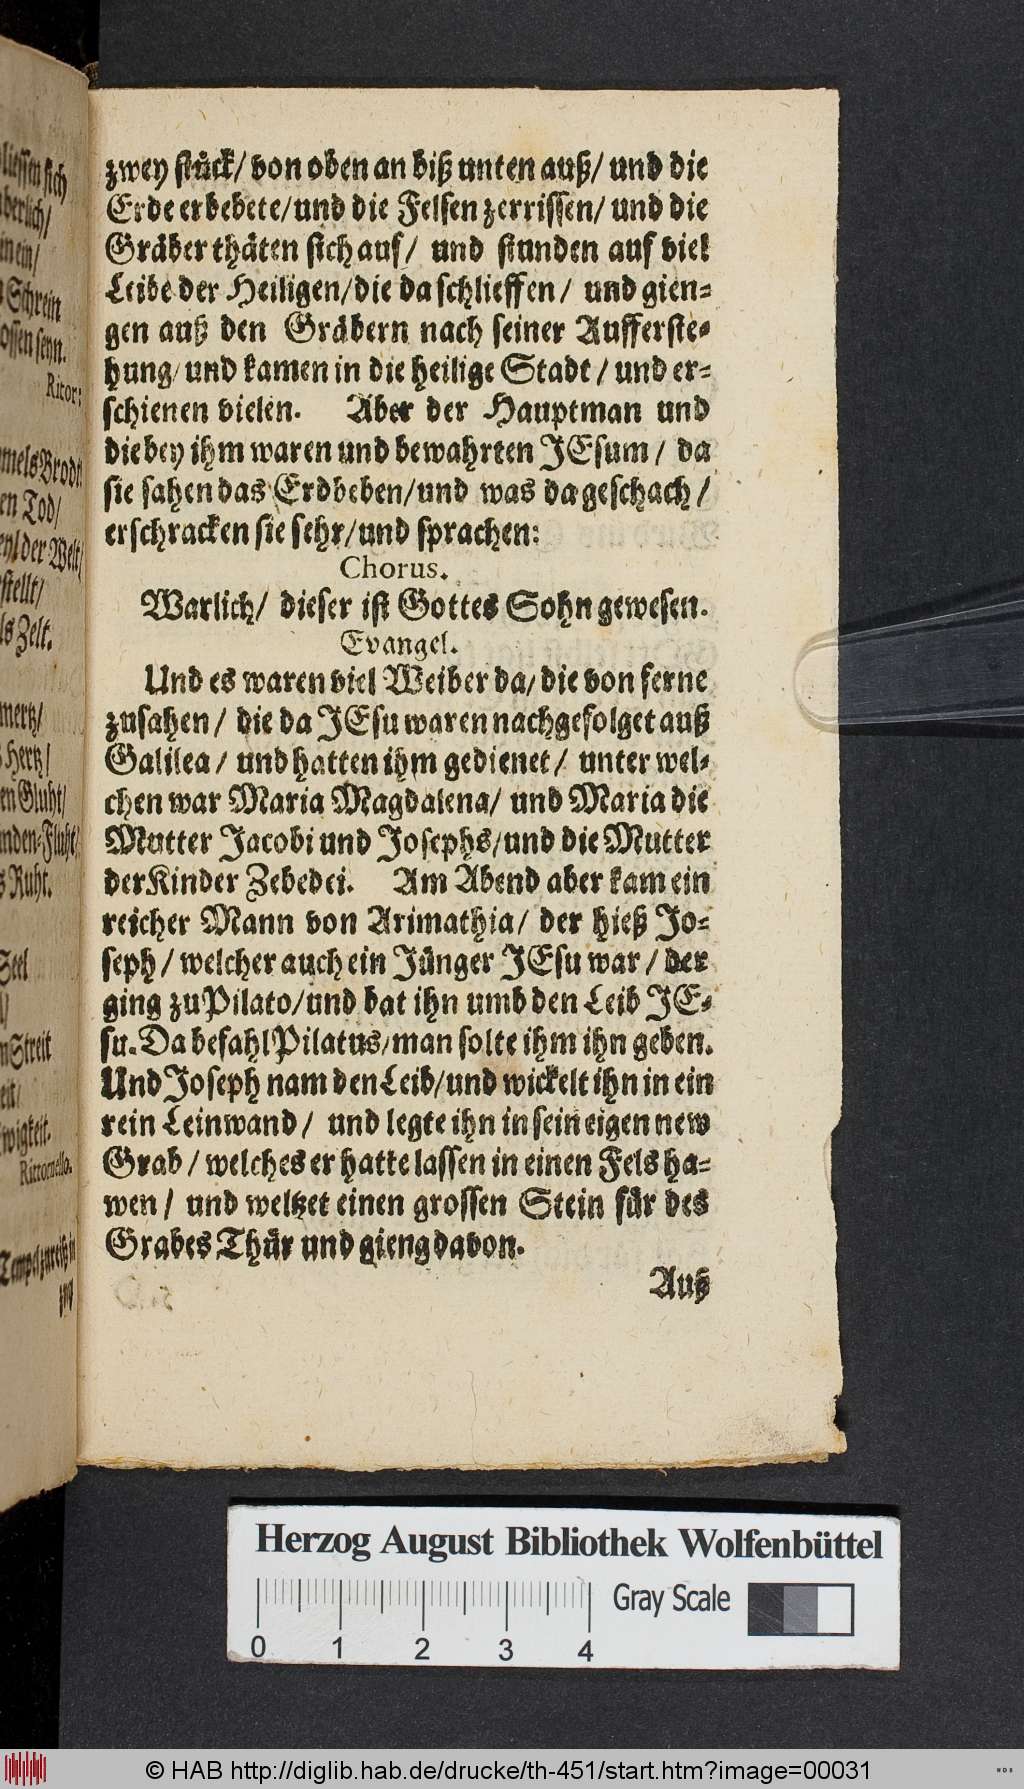 liessen sich
berlich/
Schrein
ossen seyn.
Ritor:
mels Brodt
en Tod/
der Welt/
stellt/
ls Zelt.
mertz/
Hertz/
en Gluht/
nden-Fluht/
s Ruht.
Seel
Streit
wigkeit.
Ritornello.
Tempel zureiß in
zwey
zwey stück/ von oben an biß unten auß/ und die
Erde erbebete/ und die Felsen zerrissen/ und die
Gräber thäten sich auf/ und stunden auf viel
Leibe der Heiligen/ die da schlieffen/ und gien-
gen auß den Gräbern nach seiner Aufferste-
hung/ und kamen in die heilige Stadt/ und er-
schienen vielen. Aber der Hauptman und
die bey ihm waren und bewahrten JEsum/ da
sie sahen das Erdbeben/ und was da geschach/
erschracken sie sehr/ und sprachen:
Chorus.
Warlich/ dieser ist Gottes Sohn gewesen.
Evangel.
Und es waren viel Weiber da/ die von ferne
zusahen/ die da JEsu waren nachgefolget auß
Galilea/ und hatten ihm gedienet/ unter wel-
chen war Maria Magdalena/ und Maria die
Mutter Jacobi und Josephs/ und die Mutter
der Kinder Zebedei. Am Abend aber kam ein
reicher Mann von Arimathia/ der hieß Jo-
seph/ welcher auch ein Jünger JEsu war/ der
ging zu Pilato/ und bat ihn umb den Leib JE-
su. Da befahl Pilatus/ man solte ihm ihn geben.
Und Joseph nam den Leib/ und wickelt ihn in ein
rein Leinwand/ und legte ihn in sein eigen new
Grab/ welches er hatte lassen in einen Fels ha-
wen/ und weltzet einen grossen Stein für des
Grabes Thür und gieng davon.
Auß
Herzog August Bibliothek Wolfenbüttel
Gray Scale
0 1 2 3 4
© HAB http://diglib.hab.de/drucke/th-451/start.htm?image=00031